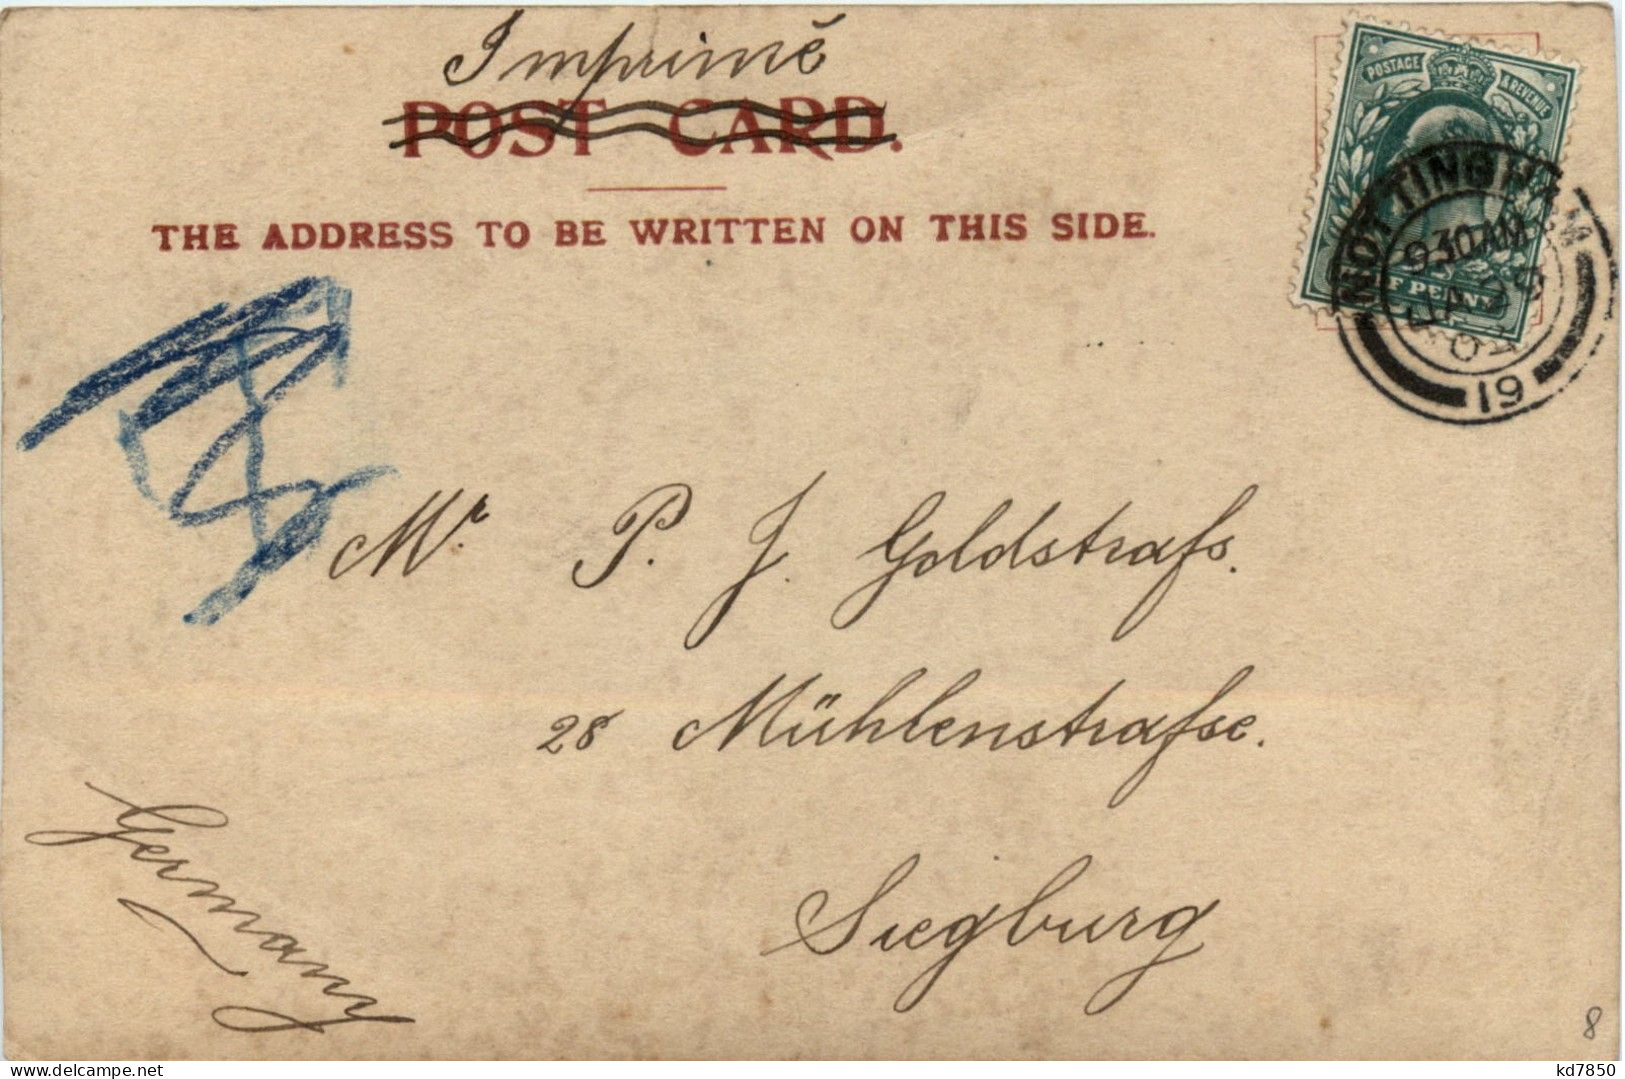 Imprimé
POST CARD.
THE ADDRESS TO BE WRITTEN ON THIS SIDE.
POSTAGE & REVENUE
F PENNY
NOTTINGHAM
930AM
JA 29
04
19
Mr P. J. Goldstrafs.
28 Mühlenstrafse.
Siegburg
Germany
8
kd7850